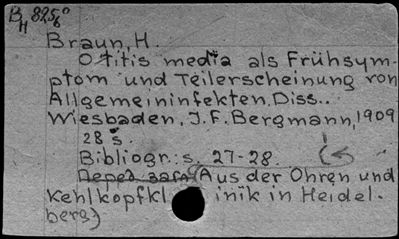 B 825
H
Braun, H.
Otitis media als Frühsym-
ptom und Teilerscheinung von
Allgemeininfekten, Diss..
Wiesbaden, J.F.Bergmann, 1909
28 s.
Bibliogr.: s. 27-28.
Перед загл (Aus der Ohren und
Kehlkopfkl inik in Heidel-
berg)